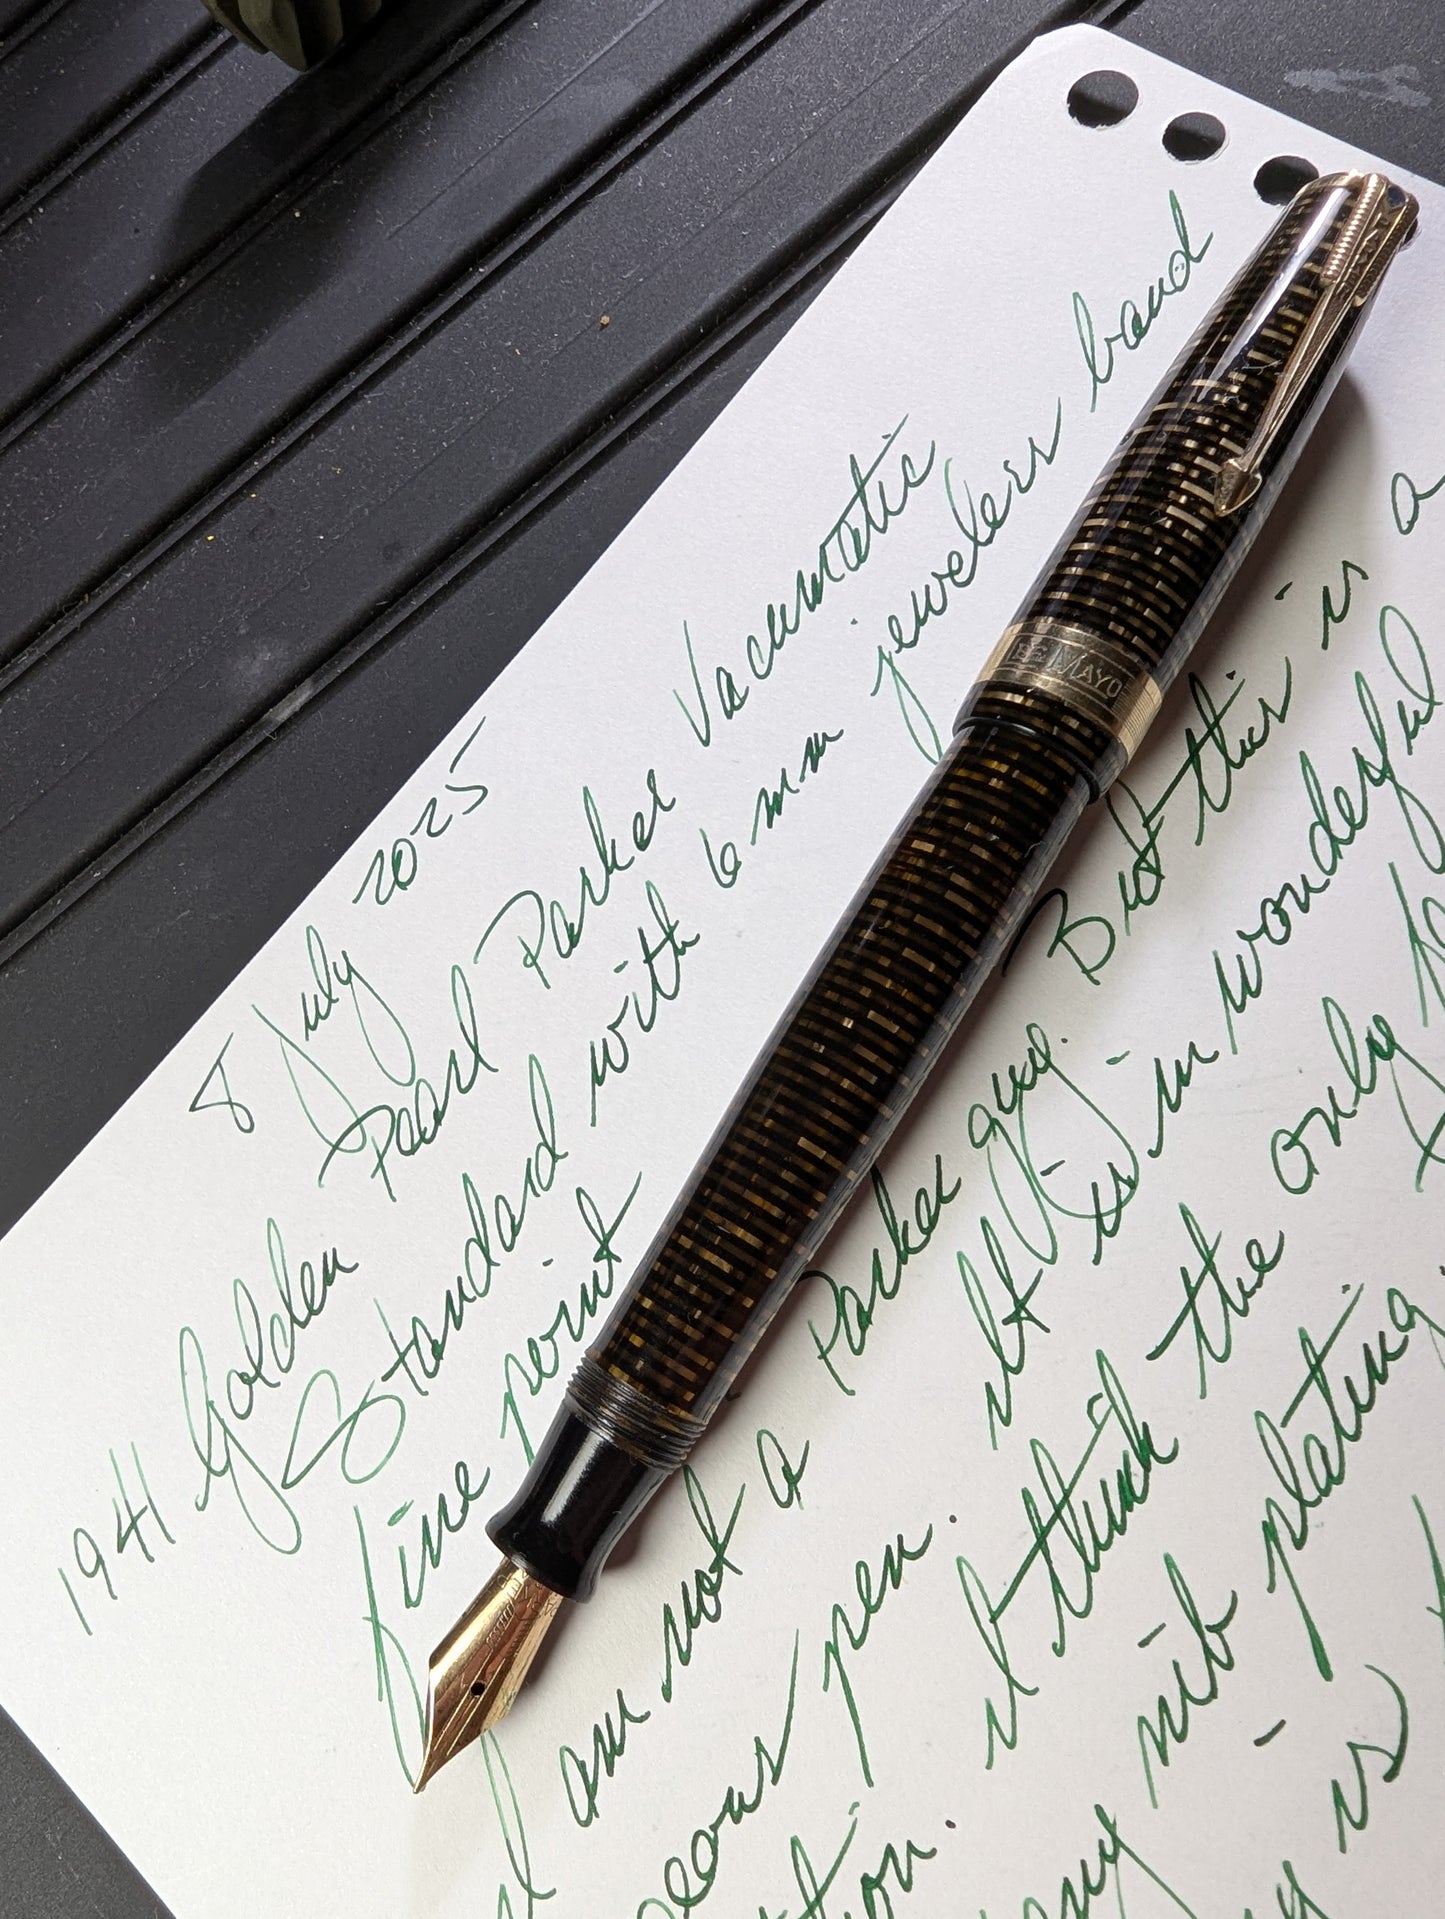 8 July 2025
1941 Golden Pearl Parker Vacumatic
Standard with 6mm jewelers band
fine point
I am not a Parker guy. But this is a
geous pen. It is in wonderful
tion. I think the only
any nib plating.
is
DE MAYO